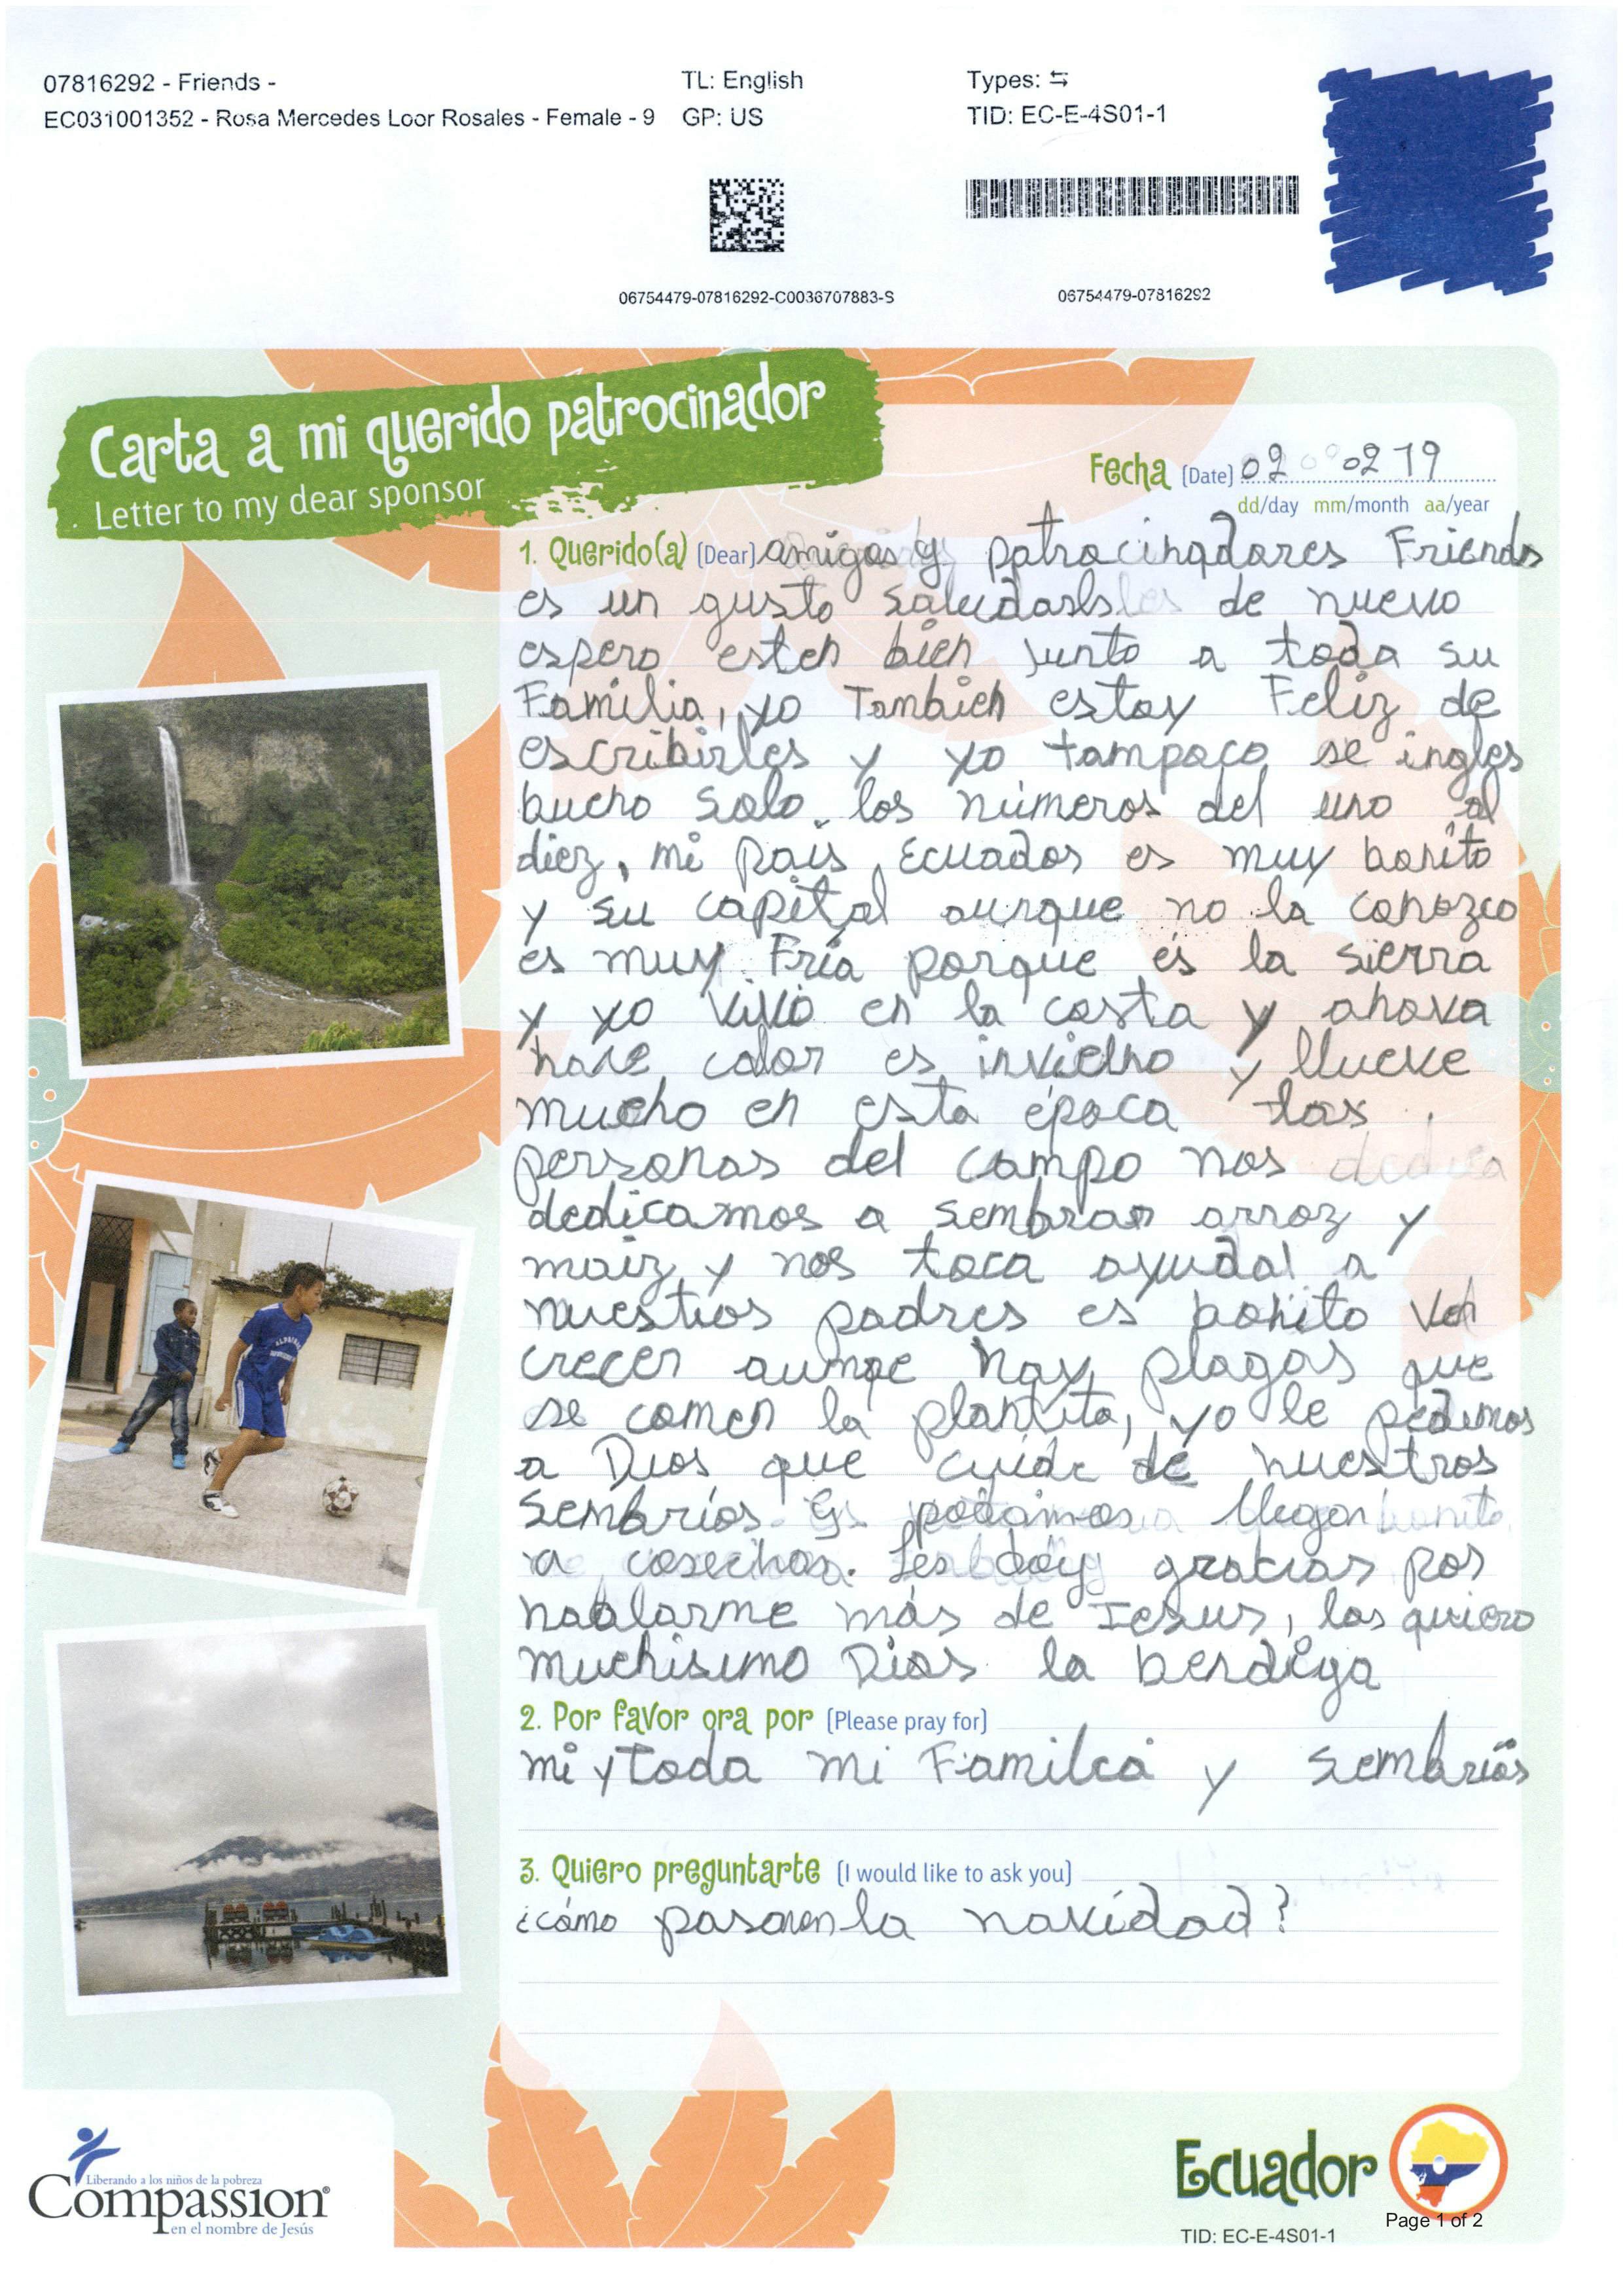 07816292 - Friends -
EC031001352 - Rosa Mercedes Loor Rosales - Female - 9
TL: English
GP: US
Types: ⇆
TID: EC-E-4S01-1
06754479-07816292-C0036707883-S
06754479-07816292
Carta a mi querido patrocinador
Letter to my dear sponsor
Fecha (Date) 02 02 19
dd/day mm/month aa/year
1. Querido(a) (Dear) amigos y patrocinadores Friends
es un gusto saludarls de nuevo
espero esten bien junto a toda su
Familia, yo Tambien estoy Feliz de
escribirles y yo tampoco se ingles
bueno solo los números del uno al
diez, mi Pais Ecuador es muy bonito
y su capital aunque no la conozco
es muy Fría porque es la sierra
y yo vivo en la costa y ahora
hace calor es invierno y llueve
mucho en esta época las
personas del campo nos
dedicamos a sembrar arroz y
maiz y nos toca ayudar a
nuestros padres es bonito ver
crecer aunqe hay plagas que
se comen la plantita, yo le pedimos
a Dios que cuide de nuestros
sembríos y podamos llegar
a cosechas. Les doy gracias por
hablarme más de Jesus, los quiero
muchisimo Dios la bendiga
2. Por favor ora por (Please pray for)
mi y toda mi Familca y sembrios
3. Quiero preguntarte (I would like to ask you)
¿cómo pasaron la navidad?
Liberando a los niños de la pobreza
Compassion®
en el nombre de Jesús
Ecuador
Page 1 of 2
TID: EC-E-4S01-1